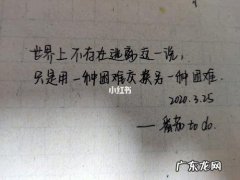 世界上不存在逃离这一说，
只是用一种困难交换另一种困难.
小红书
2020.3.25
——番茄 to do.
广东龙网